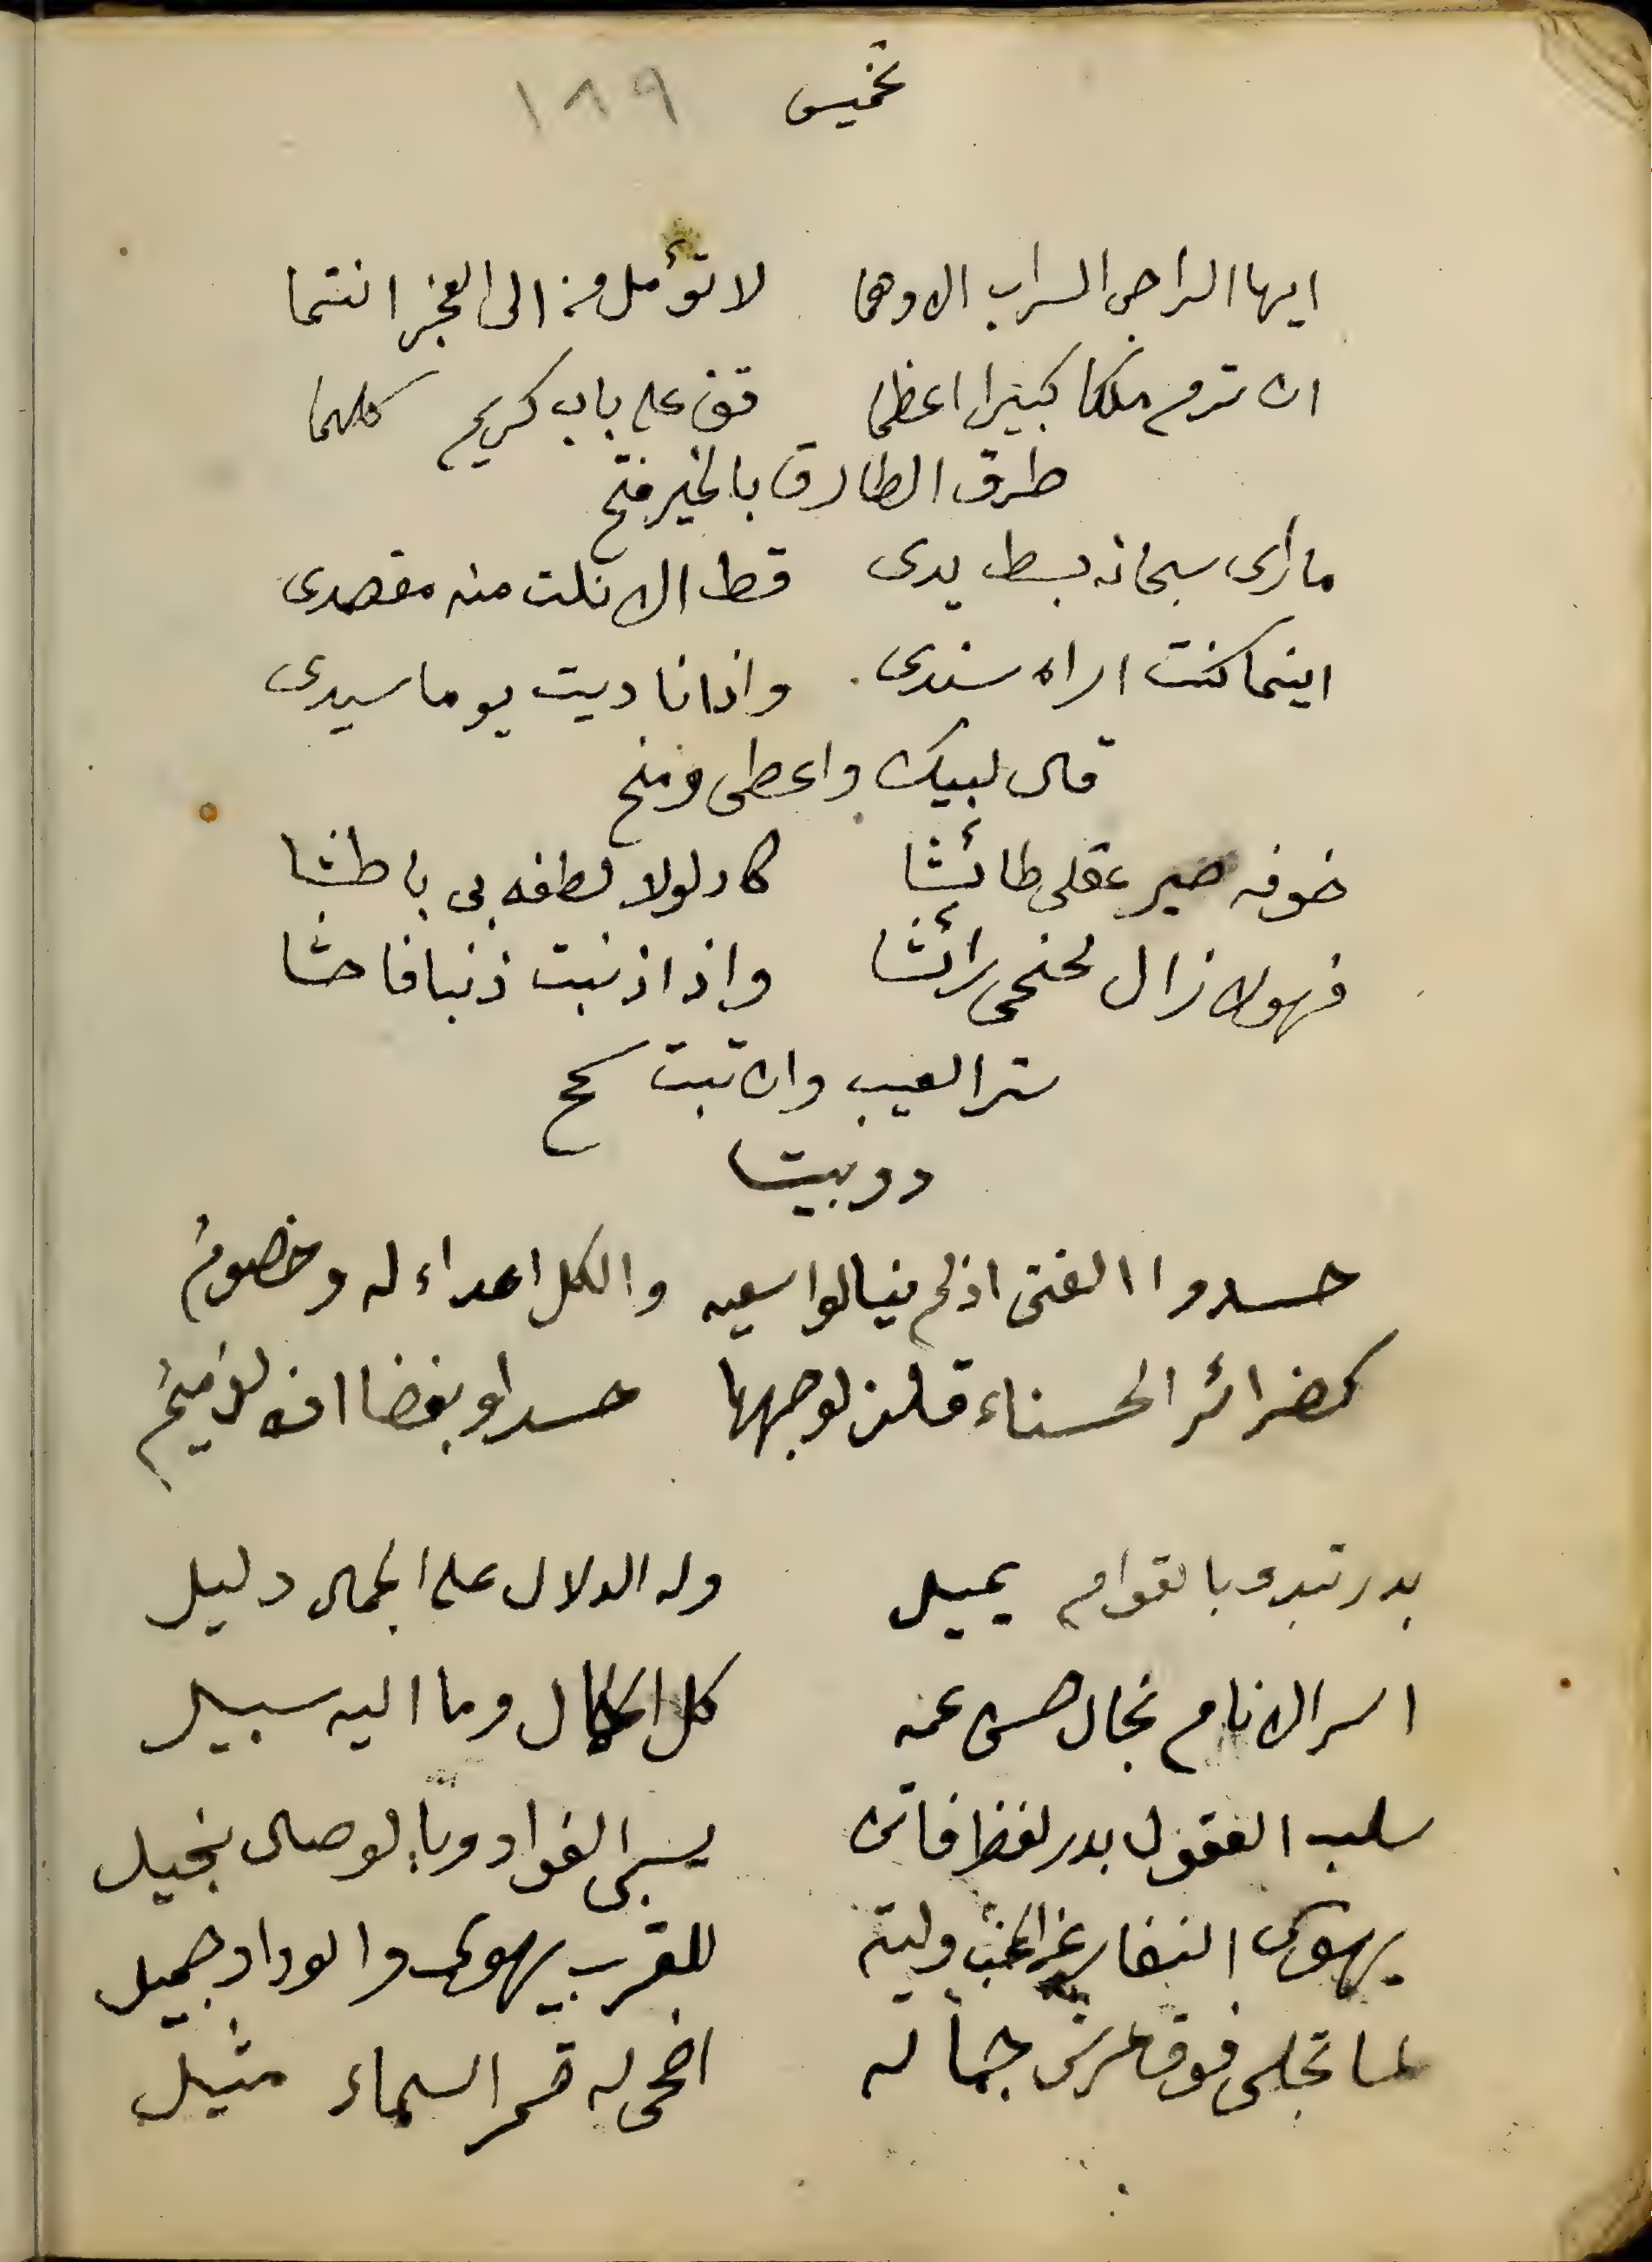 تخميس ١٨٩
ايها الراجى السراب الاوهما لا تؤمل من الى العجز انتما
ان ترم ملكا كبيرا اعظما قف على باب كريم كلما
طرق الطارق بالخير فتح
ما رأى سبحانه بسط يدى قط الا نلت منه مقصدى
اينما كنت اراه سندى واذا ناديت يوما سيدى
قال لبيك واعطى ومنح
خوفه صير عقلى طائشا كاد لولا لطفه بى باطشا
فهو لا زال لجنحى رائشا واذا اذنبت ذنبا فاحشا
ستر العيب وان تبت سمح
دوبيت
حسدوا الفتى اذ لم ينالوا سعيه والكل اعداء له وخصوم
كضرائر الحسناء قلن لوجهها حسدا وبغضا انه لذميم
بدر تبدى بالقوام يميل وله الدلال على الجمال دليل
اسر الانام بخال حسن عمه كل الكمال وما اليه سبيل
سلب العقول بدر لفظ فاتن يسبى الفواد وبالوصال بخيل
يهوى النفار عن المحب وليته للقرب يهوى والوداد جميل
لما تجلى فوق عرش جماله اضحى له قمر السماء مثيل